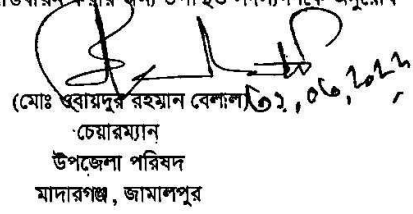 করার জন্য উপস্থিত সদস্যগণকে অনুরোধ
(মোঃ ওবায়দুর রহমান বেলাল)
চেয়ারম্যান
উপজেলা পরিষদ
মাদারগঞ্জ, জামালপুর